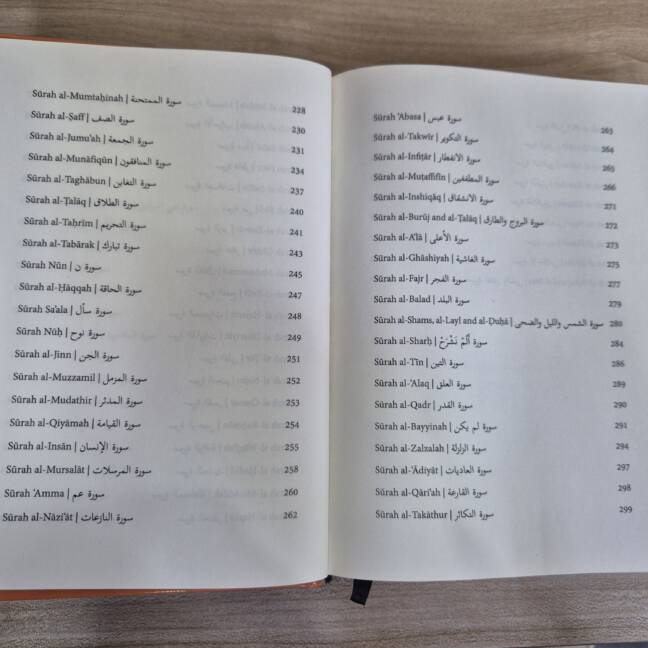 Sūrah al-Mumtaḥinah | سورة الممتحنة 228
Sūrah al-Ṣaff | سورة الصف 230
Sūrah al-Jumu'ah | سورة الجمعة 231
Sūrah al-Munāfiqūn | سورة المنافقون 234
Sūrah al-Taghābun | سورة التغابن 237
Sūrah al-Ṭalāq | سورة الطلاق 240
Sūrah al-Taḥrīm | سورة التحريم 241
Sūrah al-Tabārak | سورة تبارك 243
Sūrah Nūn | سورة ن 245
Sūrah al-Ḥāqqah | سورة الحاقة 247
Sūrah Sa'ala | سورة سأل 248
Sūrah Nūḥ | سورة نوح 249
Sūrah al-Jinn | سورة الجن 251
Sūrah al-Muzzamil | سورة المزمل 252
Sūrah al-Mudathir | سورة المدثر 253
Sūrah al-Qiyāmah | سورة القيامة 254
Sūrah al-Insān | سورة الإنسان 255
Sūrah al-Mursalāt | سورة المرسلات 258
Sūrah 'Amma | سورة عم 260
Sūrah al-Nāzi'āt | سورة النازعات 262
Sūrah 'Abasa | سورة عبس 263
Sūrah al-Takwīr | سورة التكوير 264
Sūrah al-Infiṭār | سورة الانفطار 265
Sūrah al-Muṭaffifīn | سورة المطففين 266
Sūrah al-Inshiqāq | سورة الانشقاق 271
Sūrah al-Burūj and al-Ṭalāq | سورة البروج والطارق 272
Sūrah al-A'lā | سورة الأعلى 273
Sūrah al-Ghāshiyah | سورة الغاشية 275
Sūrah al-Fajr | سورة الفجر 277
Sūrah al-Balad | سورة البلد 279
Sūrah al-Shams, al-Layl and al-Ḍuḥā | سورة الشمس والليل والضحى 280
Sūrah al-Sharḥ | سورة أَلَمْ نَشْرَحْ 284
Sūrah al-Tīn | سورة التين 286
Sūrah al-'Alaq | سورة العلق 289
Sūrah al-Qadr | سورة القدر 290
Sūrah al-Bayyinah | سورة لم يكن 291
Sūrah al-Zalzalah | سورة الزلزلة 294
Sūrah al-'Ādiyāt | سورة العاديات 297
Sūrah al-Qāri'ah | سورة القارعة 298
Sūrah al-Takāthur | سورة التكاثر 299